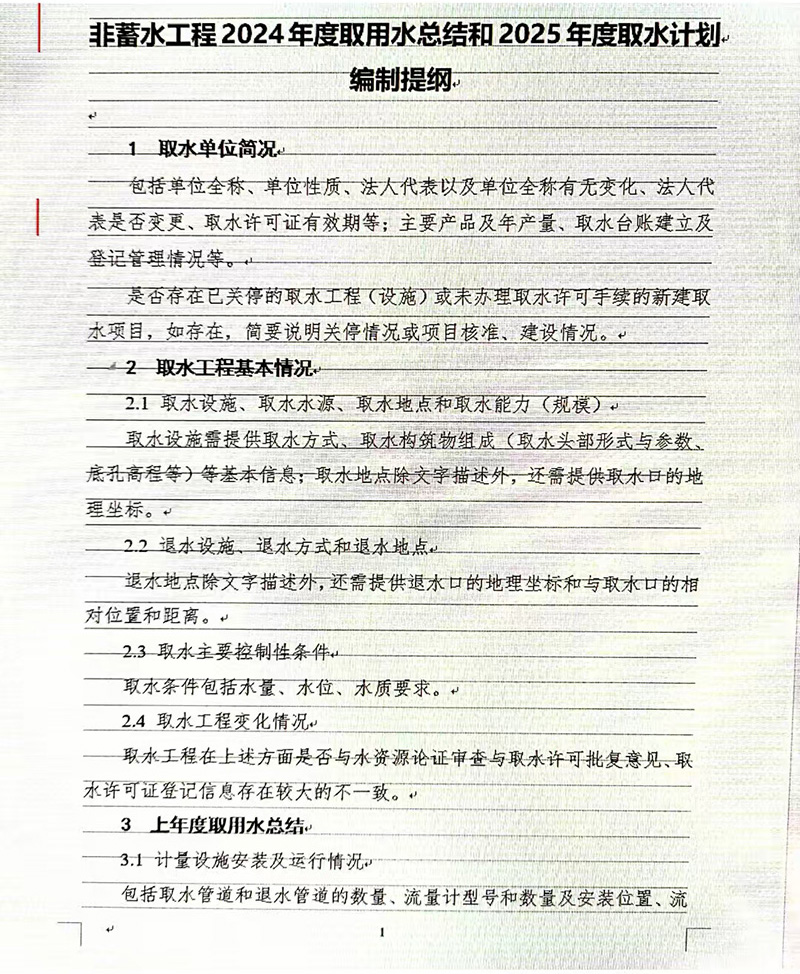 非蓄水工程 2024 年度取用水总结和 2025 年度取水计划
编制提纲
1 取水单位简况
包括单位全称、单位性质、法人代表以及单位全称有无变化、法人代
表是否变更、取水许可证有效期等；主要产品及年产量、取水台账建立及
登记管理情况等。
是否存在已关停的取水工程（设施）或未办理取水许可手续的新建取
水项目，如存在，简要说明关停情况或项目核准、建设情况。
2 取水工程基本情况
2.1 取水设施、取水水源、取水地点和取水能力（规模）
取水设施需提供取水方式、取水构筑物组成（取水头部形式与参数、
底孔高程等）等基本信息；取水地点除文字描述外，还需提供取水口的地
理坐标。
2.2 退水设施、退水方式和退水地点
退水地点除文字描述外，还需提供退水口的地理坐标和与取水口的相
对位置和距离。
2.3 取水主要控制性条件
取水条件包括水量、水位、水质要求。
2.4 取水工程变化情况
取水工程在上述方面是否与水资源论证审查与取水许可批复意见、取
水许可证登记信息存在较大的不一致。
3 上年度取用水总结
3.1 计量设施安装及运行情况
包括取水管道和退水管道的数量、流量计型号和数量及安装位置、流
1